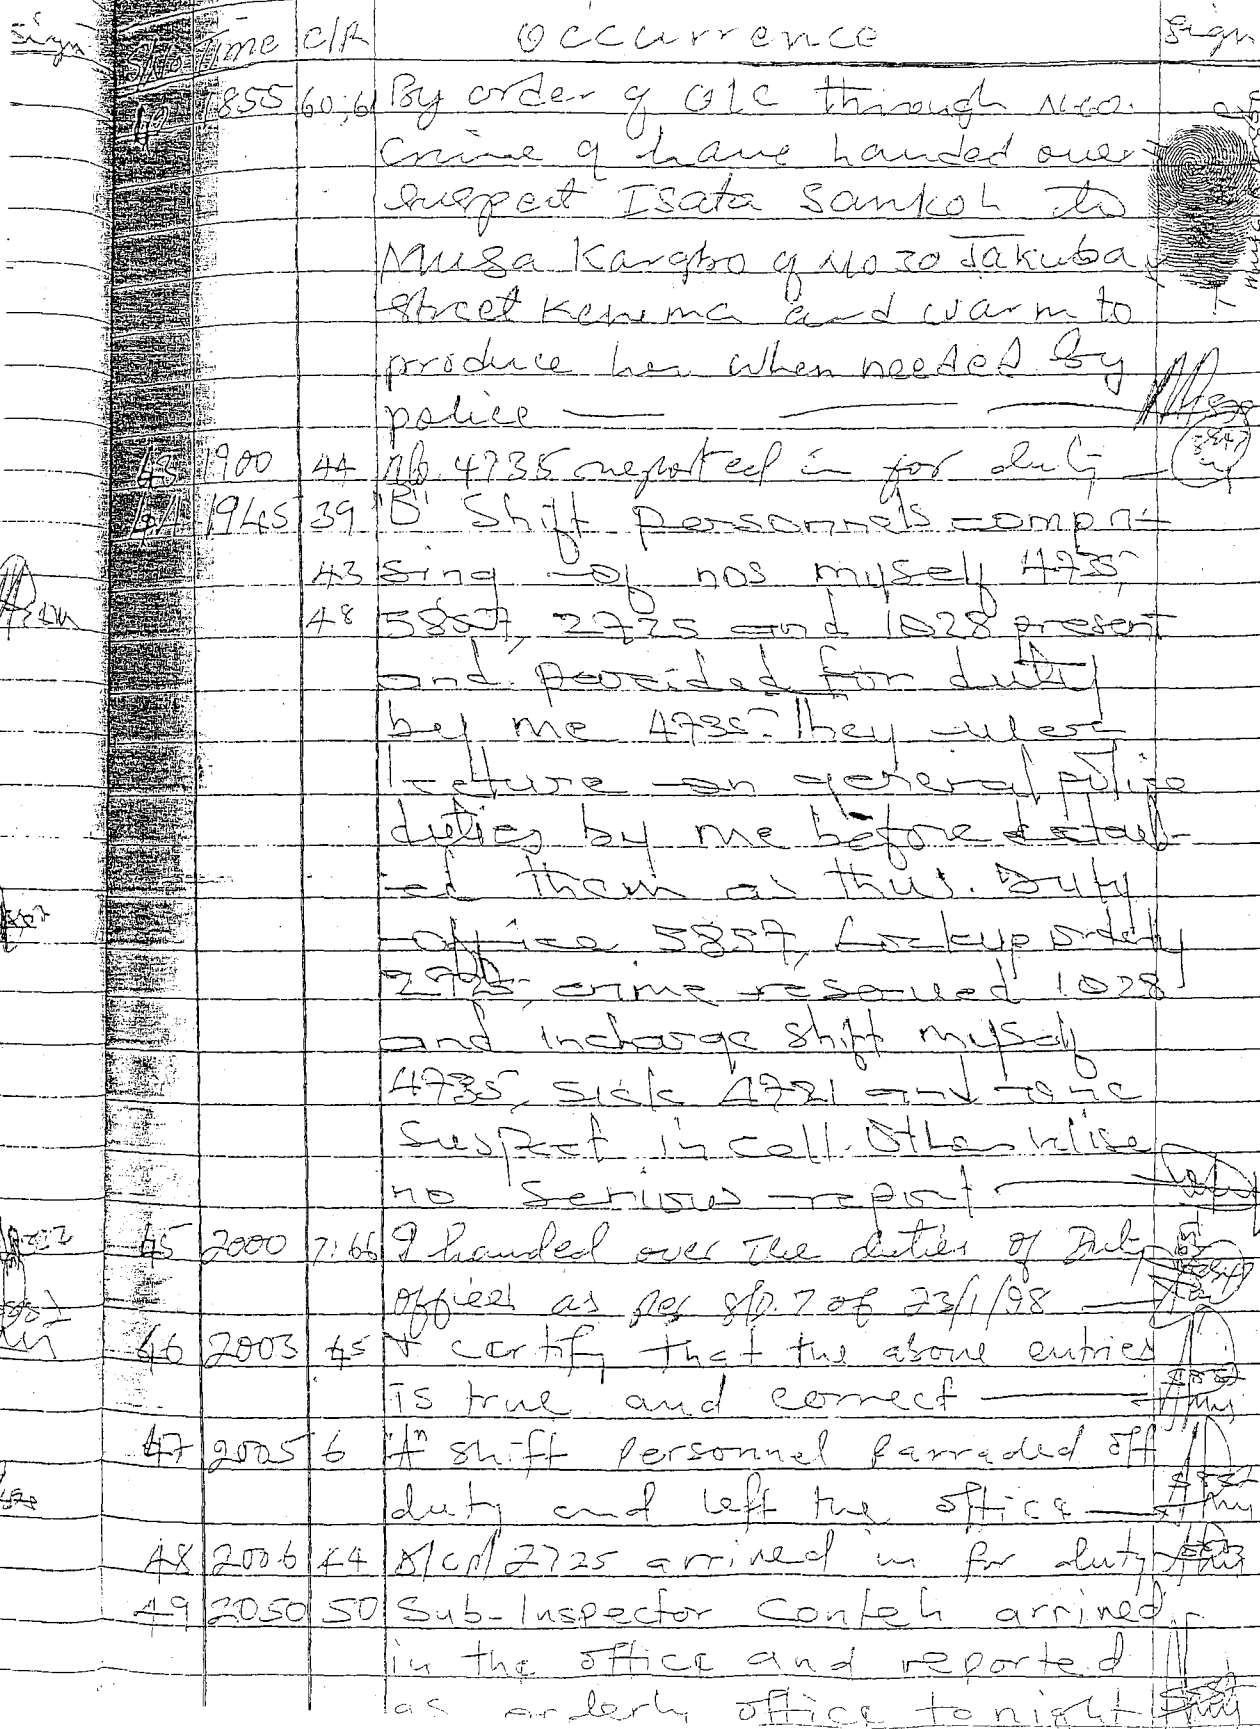 sign S/No Time C/R Occurrence Sign
1855 60,61 By order of O/C through N.C.O.
crime I have handed over
suspect Isata Sankoh to
Musa Kargbo of No 30 Jakuba
street Kenema and warn to
produce her when needed by
police
43 1900 44 No. 4735 reported in for duty
44 1945 39 "B" Shift personnels compri-
43 sing of nos myself 4735,
48 5857, 2725 and 1028 present
and paraded for duty
by me 4735. They were
lecture on general police
duties by me before detail-
ed them as thus. Duty
office 5857, Lockup orderly
2725, crime reserved 1028
and incharge shift myself
4735, sick 4721 and one
suspect in cell. Otherwise
no serious report
45 2000 7:66 I handed over the duties of Duty
officer as per S/P. 7 of 23/1/98
46 2003 45 I certify that the above entries
is true and correct
47 2005 6 "A" shift personnel parraded off
duty and left the office
48 2006 44 2725 arrived in for duty
49 2050 50 Sub-Inspector Conteh arrived
in the office and reported
as orderly office tonight